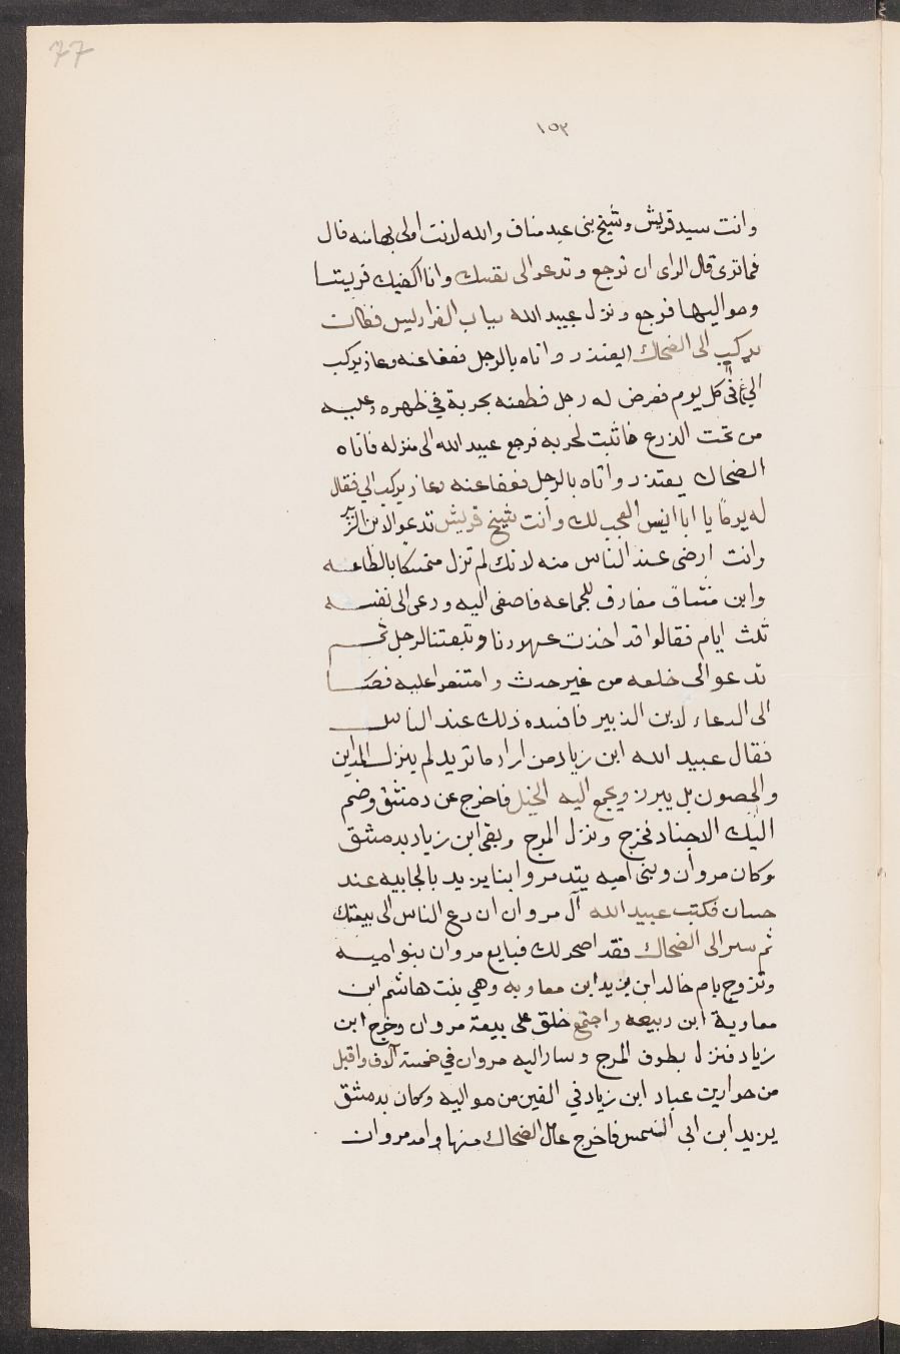 77
١٥٣
وانت سيد قريش وشيخ بنى عبد مناف والله لانت اولى بها منه قال
فما ترى قال الراى ان ترجع وتدعوا لى نفسك وانا اكفيك قريشا
ومواليها فرجع ونزل عبيد الله بباب الفراديس فكان
يركب الى الضحاك
الى الضحاك كل يوم فعرض له رجل فطعنه بحربة في ظهره وعليه
من تحت الدرع فاثبت لحربه فرجع عبيد الله الى منزله فاتاه
الضحاك يعتذر واتاه بالرجل فعفا عنه وعاد يركب الي فقال
له يوما يا ابا انيس العجب لك وانت شيخ قريش تدعو لابن الزبير
وانت ارضى عند الناس منه لانك لم تزل متمسكا بالطاعه
وابن مشاق مفارق للجماعه فاصغى اليه ودعى الى نفسه
ثلث ايام فقالوا قد اخذت عهودنا وبيعتنا لرجل ثم
تدعوا لى خلعه من غير حدث وامتنعوا عليه
الى الدعاء لابن الزبير فافسده ذلك عند الناس
فقال عبيد الله ابن زياد من اراد ما تريد لم ينزل المداين
والحصون بل يبرز ويجمع اليه الخيل فاخرج عن دمشق وضم
اليك الاجناد فخرج ونزل المرج وبقى ابن زياد بدمشق
وكان مروان وبنى اميه بتدمر وابنا يزيد بالجابيه عند
حسان فكتب عبيد الله الى مروان ان ادع الناس الى بيعتك
ثم سر الى الضحاك فقد اصحر لك فبايع مروان بنوا ميه
وتزوج بام خالد ابن يزيد ابن معاويه وهي بنت هاشم ابن
معاوية ابن ربيعه واجتمع خلق على بيعة مروان وخرج ابن
زياد فنزل بطرف المرج وسار اليه مروان في خمسة آلاف واقبل
من حوارين عباد ابن زياد في الفين من مواليه وكان بدمشق
يزيد ابن ابى النمس فاخرج عامل الضحاك منها وامد مروان